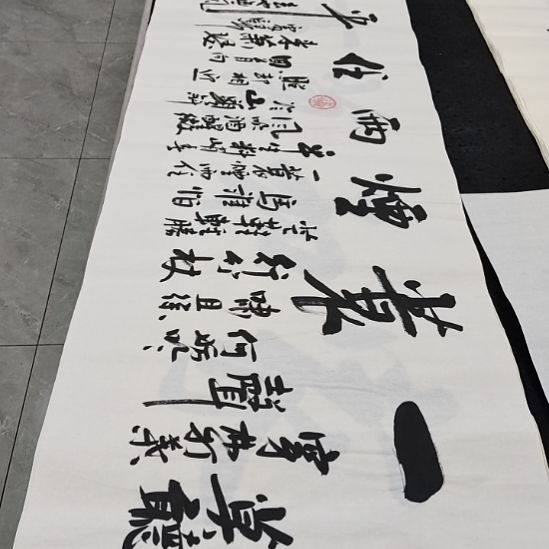 一蓑煙雨任平
莫聽
穿林打葉
聲
何妨吟
嘯且徐
行竹杖
芒鞋輕勝
馬誰怕
一蓑煙雨任
平生料峭春
風吹酒醒微
冷山頭斜
照卻相迎
回首向
來蕭瑟